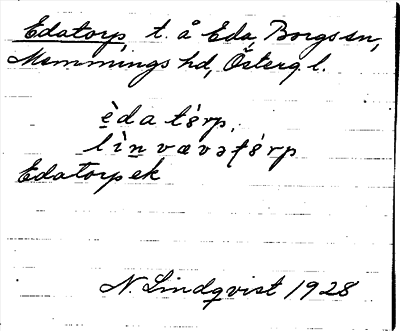 Edatorp, t. å Eda, Borgs sn,
Memmings hd, Österg. l.
è̱da tó̱rp,
lìn vævǝʈó̱rp
Edatorp ek
N. Lindqvist 1928